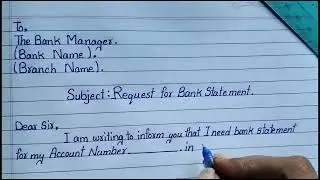 To,
The Bank Manager.
(Bank Name).
(Branch Name).
Subject: Request for Bank Statement.
Dear Sir,
I am writing to inform you that I need bank statement
for my Account Number_________. in